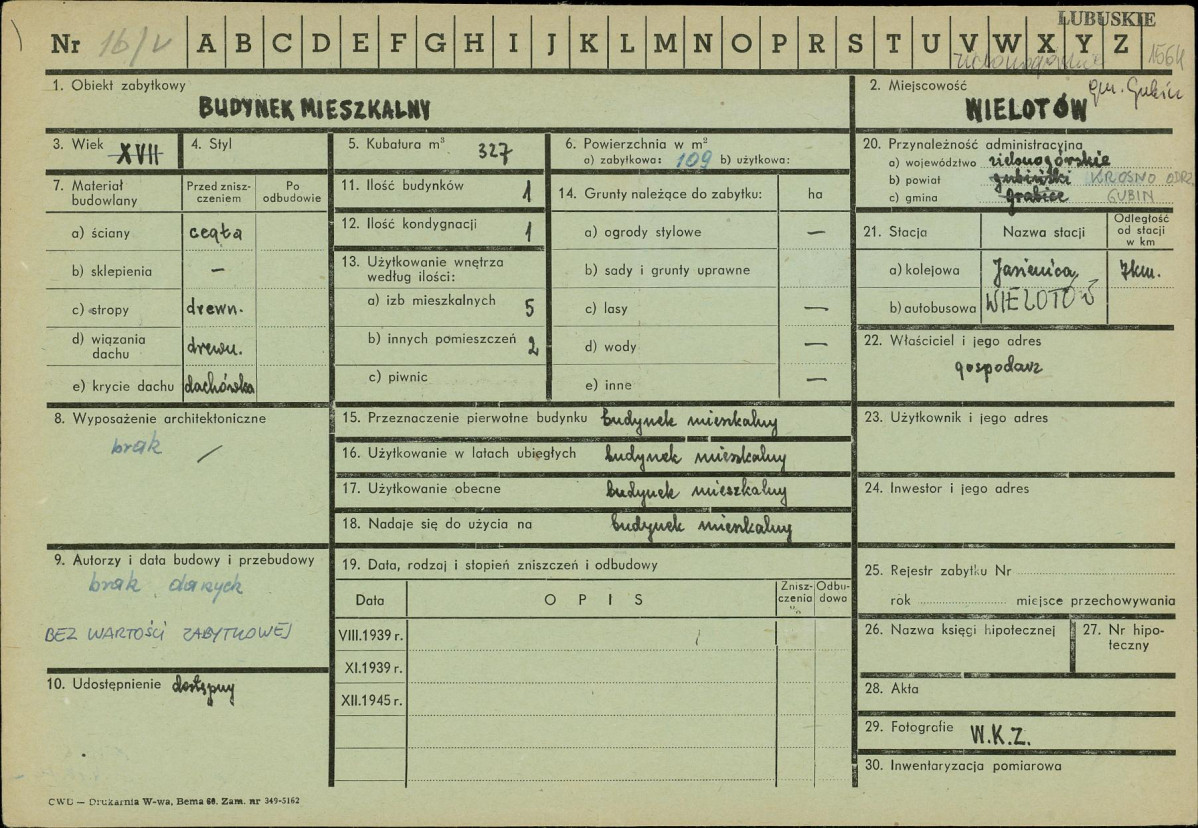 LUBUSKIE
Nr 16/V A B C D E F G H I J K L M N O P R S T U V W X Y Z 1564
zielonogórskie
1. Obiekt zabytkowy
BUDYNEK MIESZKALNY
2. Miejscowość gm. Gubin
WIELOTÓW
3. Wiek XVII
4. Styl
5. Kubatura m³ 327
6. Powierzchnia w m²
a) zabytkowa: 109 b) użytkowa:
20. Przynależność administracyjna
a) województwo zielonogórskie
b) powiat gubiński KROSNO ODRZ
c) gmina Grabice GUBIN
7. Materiał budowlany
Przed zniszczeniem
Po odbudowie
a) ściany cegła
b) sklepienia —
c) stropy drewn.
d) wiązania dachu drewn.
e) krycie dachu dachówka
11. Ilość budynków 1
12. Ilość kondygnacji 1
13. Użytkowanie wnętrza
według ilości:
a) izb mieszkalnych 5
b) innych pomieszczeń 2
c) piwnic
14. Grunty należące do zabytku: ha
a) ogrody stylowe —
b) sady i grunty uprawne
c) lasy —
d) wody —
e) inne —
21. Stacja Nazwa stacji
Odległość
od stacji
w km
a) kolejowa Jasienica 7km.
b) autobusowa WIELOTÓW
22. Właściciel i jego adres
gospodarz
8. Wyposażenie architektoniczne
brak /
15. Przeznaczenie pierwotne budynku budynek mieszkalny
16. Użytkowanie w latach ubiegłych budynek mieszkalny
17. Użytkowanie obecne budynek mieszkalny
18. Nadaje się do użycia na budynek mieszkalny
23. Użytkownik i jego adres
24. Inwestor i jego adres
9. Autorzy i data budowy i przebudowy
brak danych
BEZ WARTOŚCI ZABYTKOWEJ
10. Udostępnienie dostępny
19. Data, rodzaj i stopień zniszczeń i odbudowy
Data OPIS
Zniszczenia %
Odbudowa
VIII.1939 r.
XI.1939 r.
XII.1945 r.
25. Rejestr zabytku Nr
rok miejsce przechowywania
26. Nazwa księgi hipotecznej
27. Nr hipoteczny
28. Akta
29. Fotografie W.K.Z.
30. Inwentaryzacja pomiarowa
CWD — Drukarnia W-wa, Bema 60. Zam. nr 349-5162